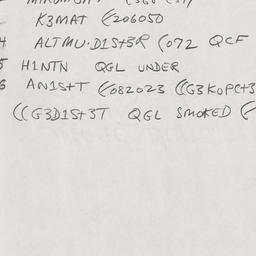 K3MAT (206050
4 ALTMU.D1S+3R (072 QCF
5 H1NTN QGL UNDER
6 AN1S+T (082023 ((G3K0PC+3
((G3D1S+3T QGL SMOKED (